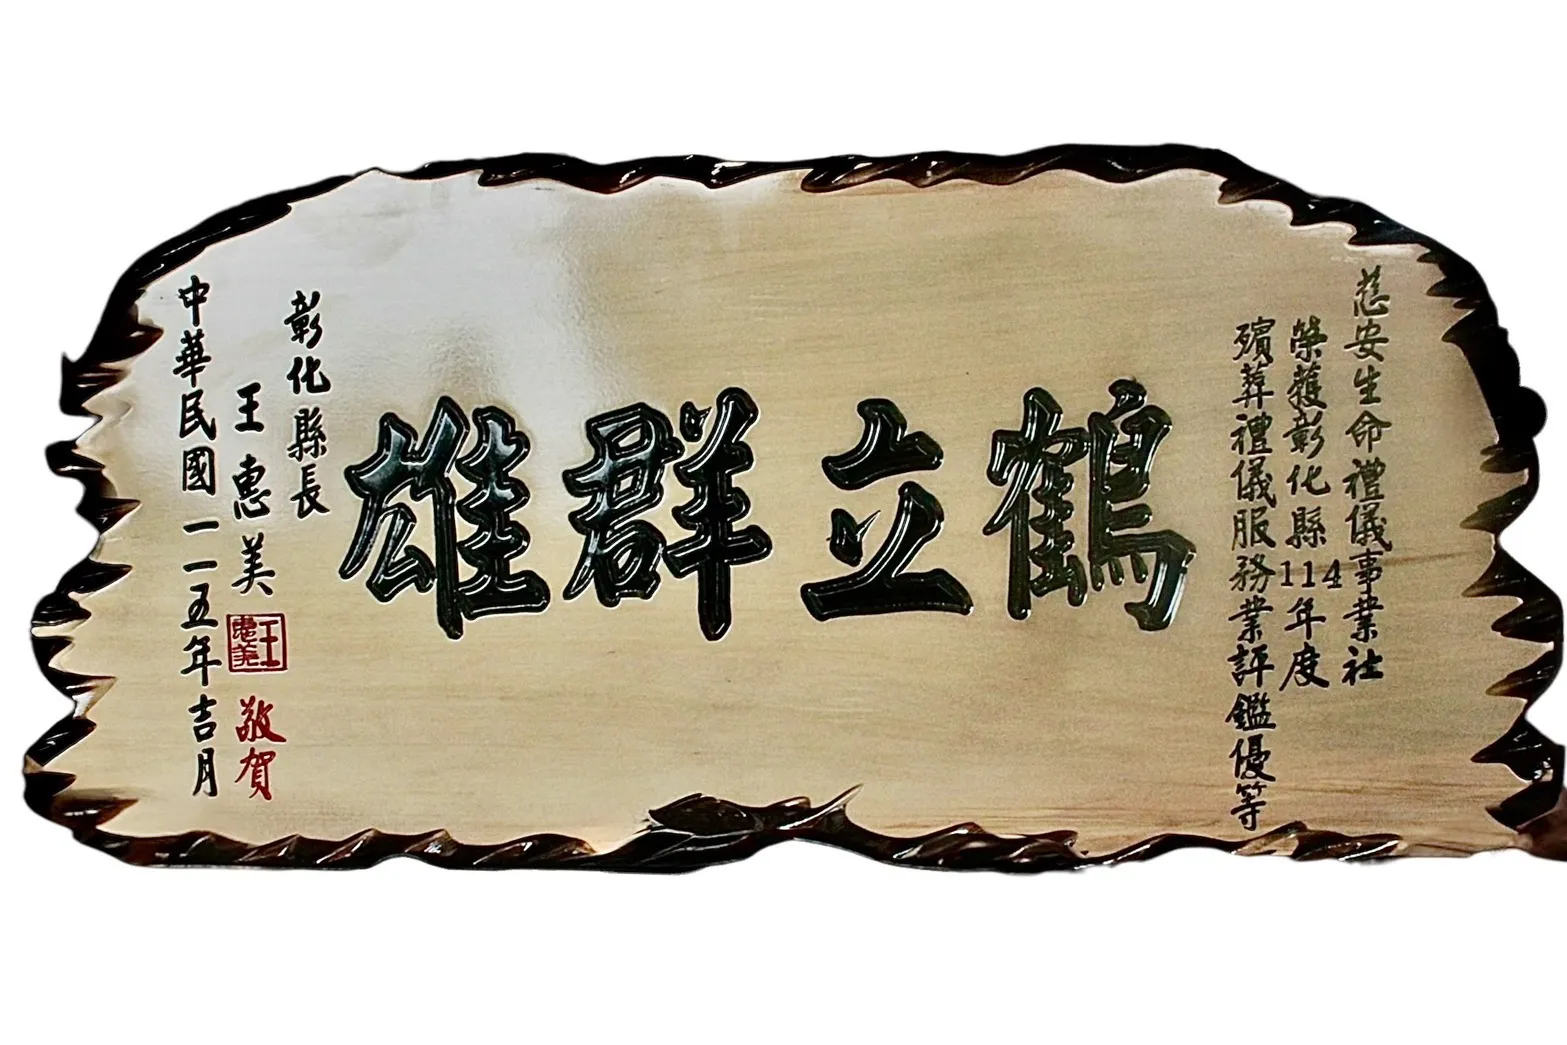 慈安生命禮儀事業社
榮獲彰化縣114年度
殯葬禮儀服務業評鑑優等
鶴立群雄
彰化縣長
王惠美
王惠美
敬賀
中華民國一一五年吉月